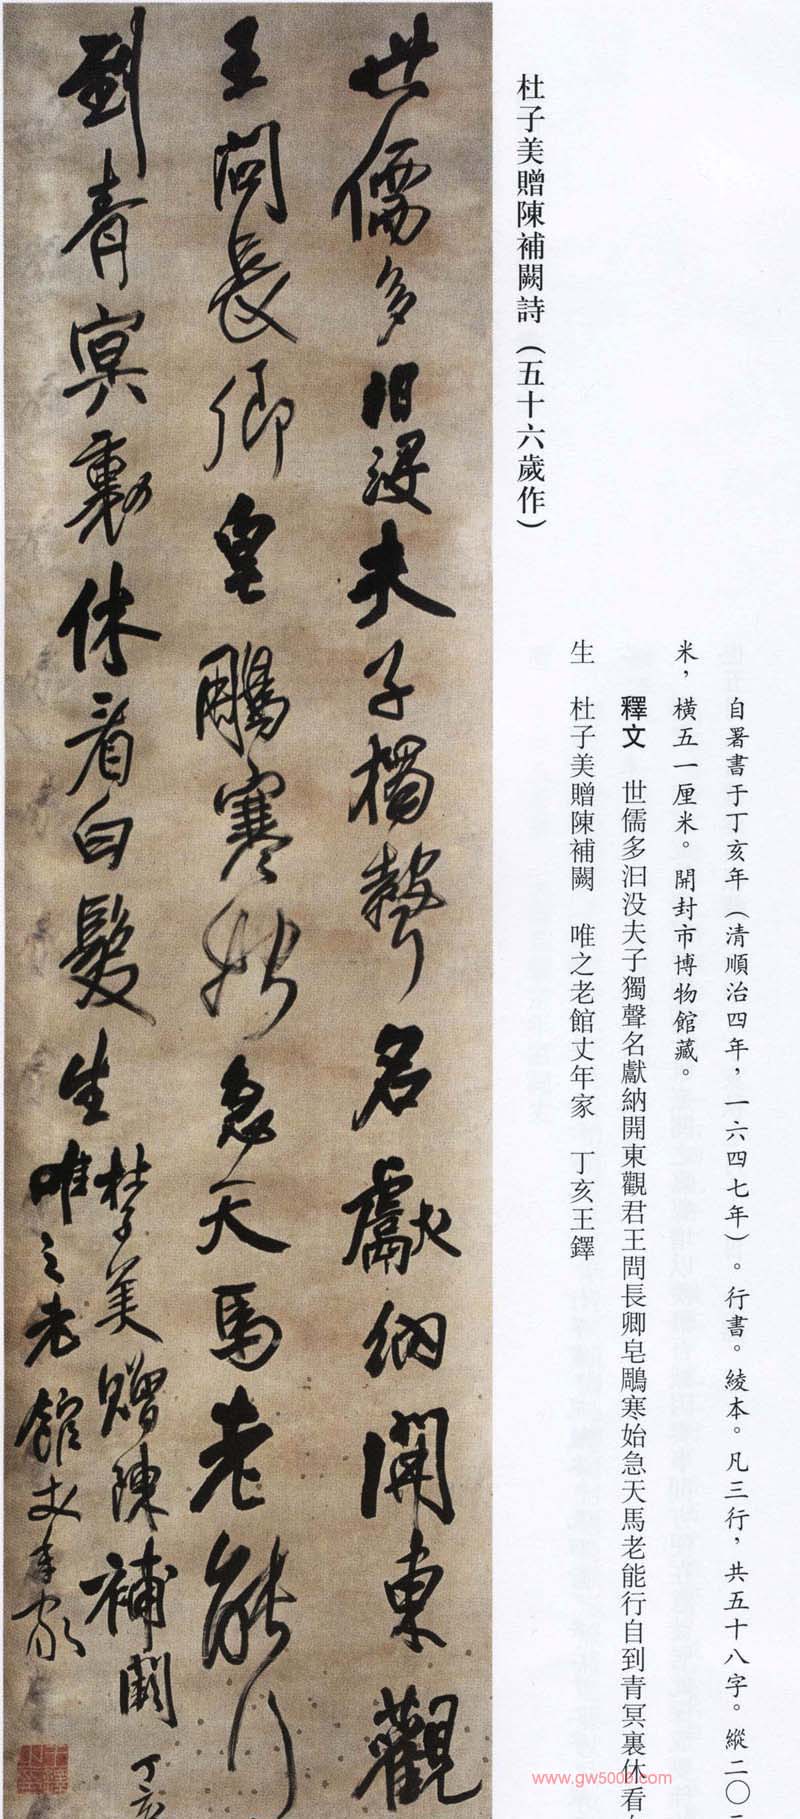 杜子美贈陳補闕詩(五十六歲作)
自署書于丁亥年(清順治四年,一六四七年)。行書。綾本。凡三行,共五十八字。縱二〇
米,橫五一厘米。開封市博物館藏。
釋文 世儒多汩没夫子獨聲名獻納開東觀君王問長卿皂鵰寒始急天馬老能行自到青冥裏休看
生 杜子美贈陳補闕 唯之老館丈年家 丁亥王鐸
世儒多汩没夫子獨聲名獻納開東觀
王問長卿皂鵰寒始急天馬老能行
到青冥裏休看白髮生
杜子美贈陳補闕 丁亥
唯之老館丈年家
www.gw5003.com